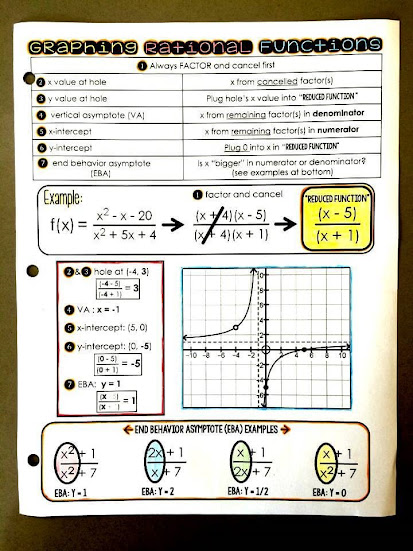 GRAPHING RATIONAL FUNCTIONS
1 Always FACTOR and cancel first
2 x value at hole x from cancelled factor(s)
3 y value at hole Plug hole's x value into "REDUCED FUNCTION"
4 vertical asymptote (VA) x from remaining factor(s) in denominator
5 x-intercept x from remaining factor(s) in numerator
6 y-intercept Plug 0 into x in "REDUCED FUNCTION"
7 end behavior asymptote (EBA) Is x "bigger" in numerator or denominator? (see examples at bottom)
Example: 1 factor and cancel "REDUCED FUNCTION"
f(x) = x² - x - 20 / x² + 5x + 4 → (x + 4)(x - 5) / (x + 4)(x + 1) → (x - 5) / (x + 1)
2 & 3 hole at (-4, 3)
(-4 - 5) / (-4 + 1) = 3
4 VA : x = -1
5 x-intercept: (5, 0)
6 y-intercept: (0, -5)
(0 - 5) / (0 + 1) = -5
7 EBA: y = 1
= 1
-10 -8 -6 -4 -2 2 4 6 8 10
← END BEHAVIOR ASYMPTOTE (EBA) EXAMPLES →
x² + 1 / x² + 7 2x + 1 / x + 7 x + 1 / 2x + 7 x + 1 / x² + 7
EBA: Y = 1 EBA: Y = 2 EBA: Y = 1/2 EBA: Y = 0